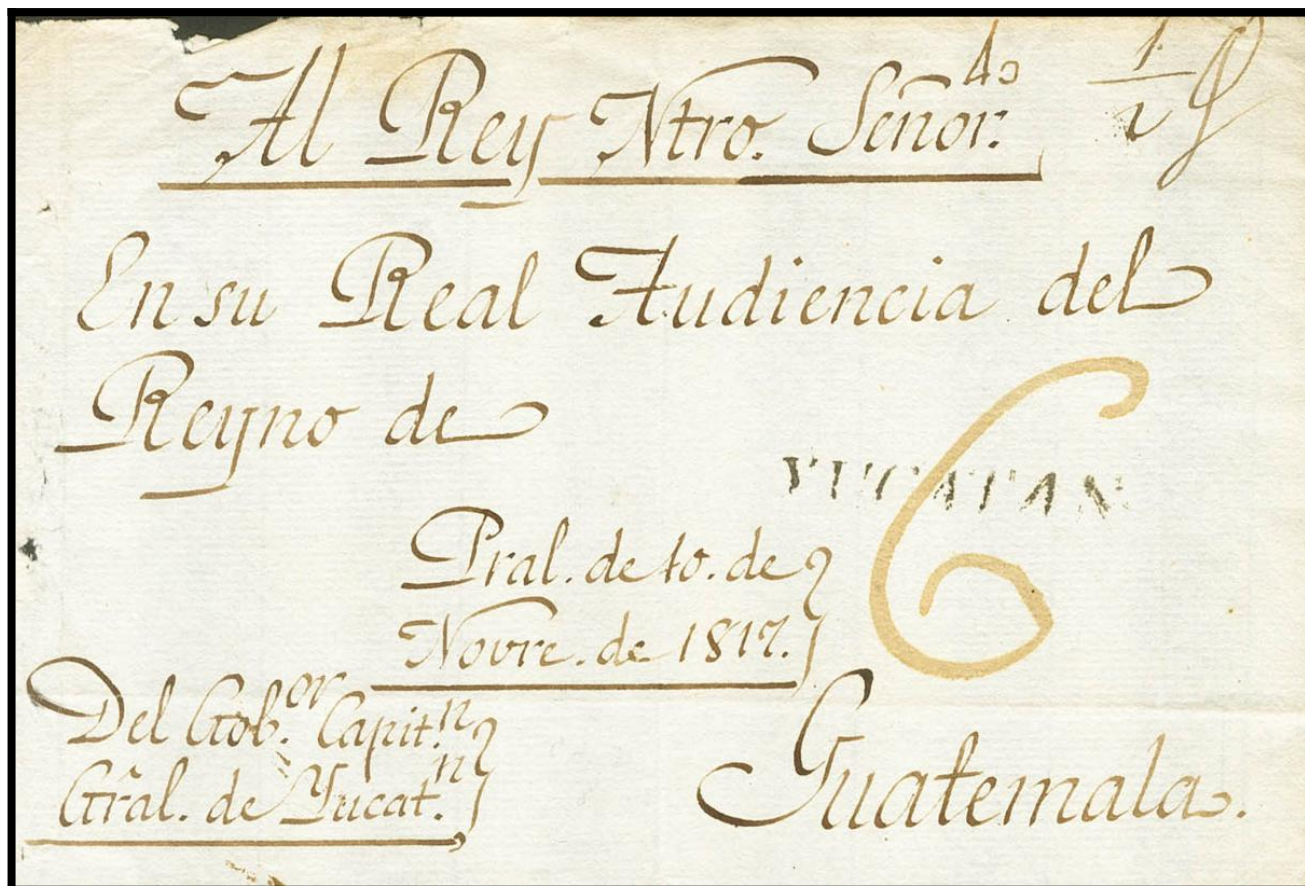 Al Rey Ntro. Señor.
En su Real Audiencia del
Reyno de
6
YUCATAN
Pral. de 10. de
Novre. de 1817.
Del Gob.or Capit.n
Gral. de Yucat.n
Guatemala.